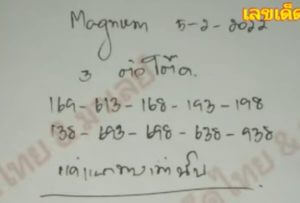 เลขเด็ด
Magnum 5-2-2022
3 ตัวโต๊ด.
169-613-168-193-198
138-693-698-638-938